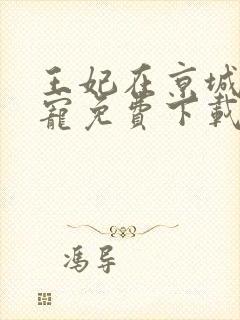 王妃在京城
寵免費下載
馮导